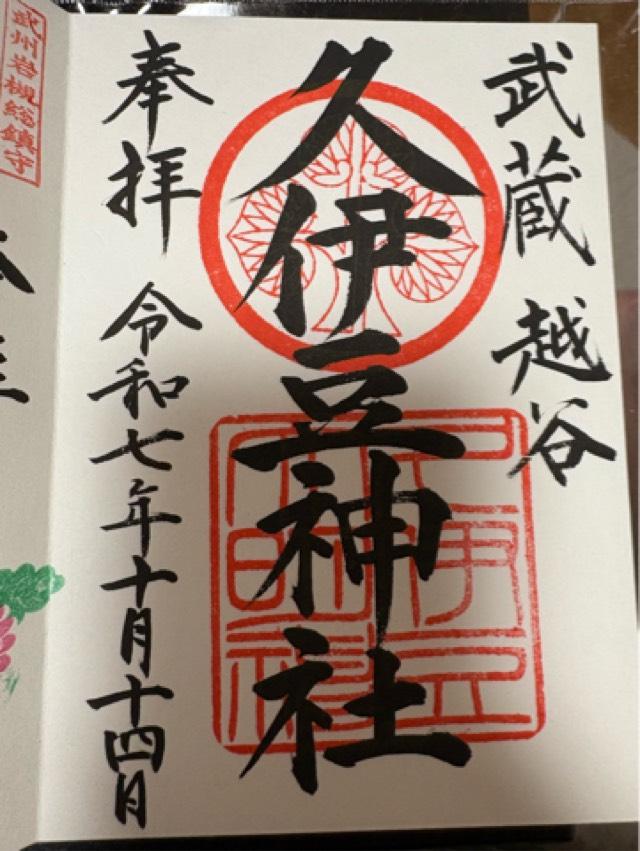 武蔵 越谷
久伊豆神社
奉拝 令和七年十月十四日
武州岩槻総鎮守